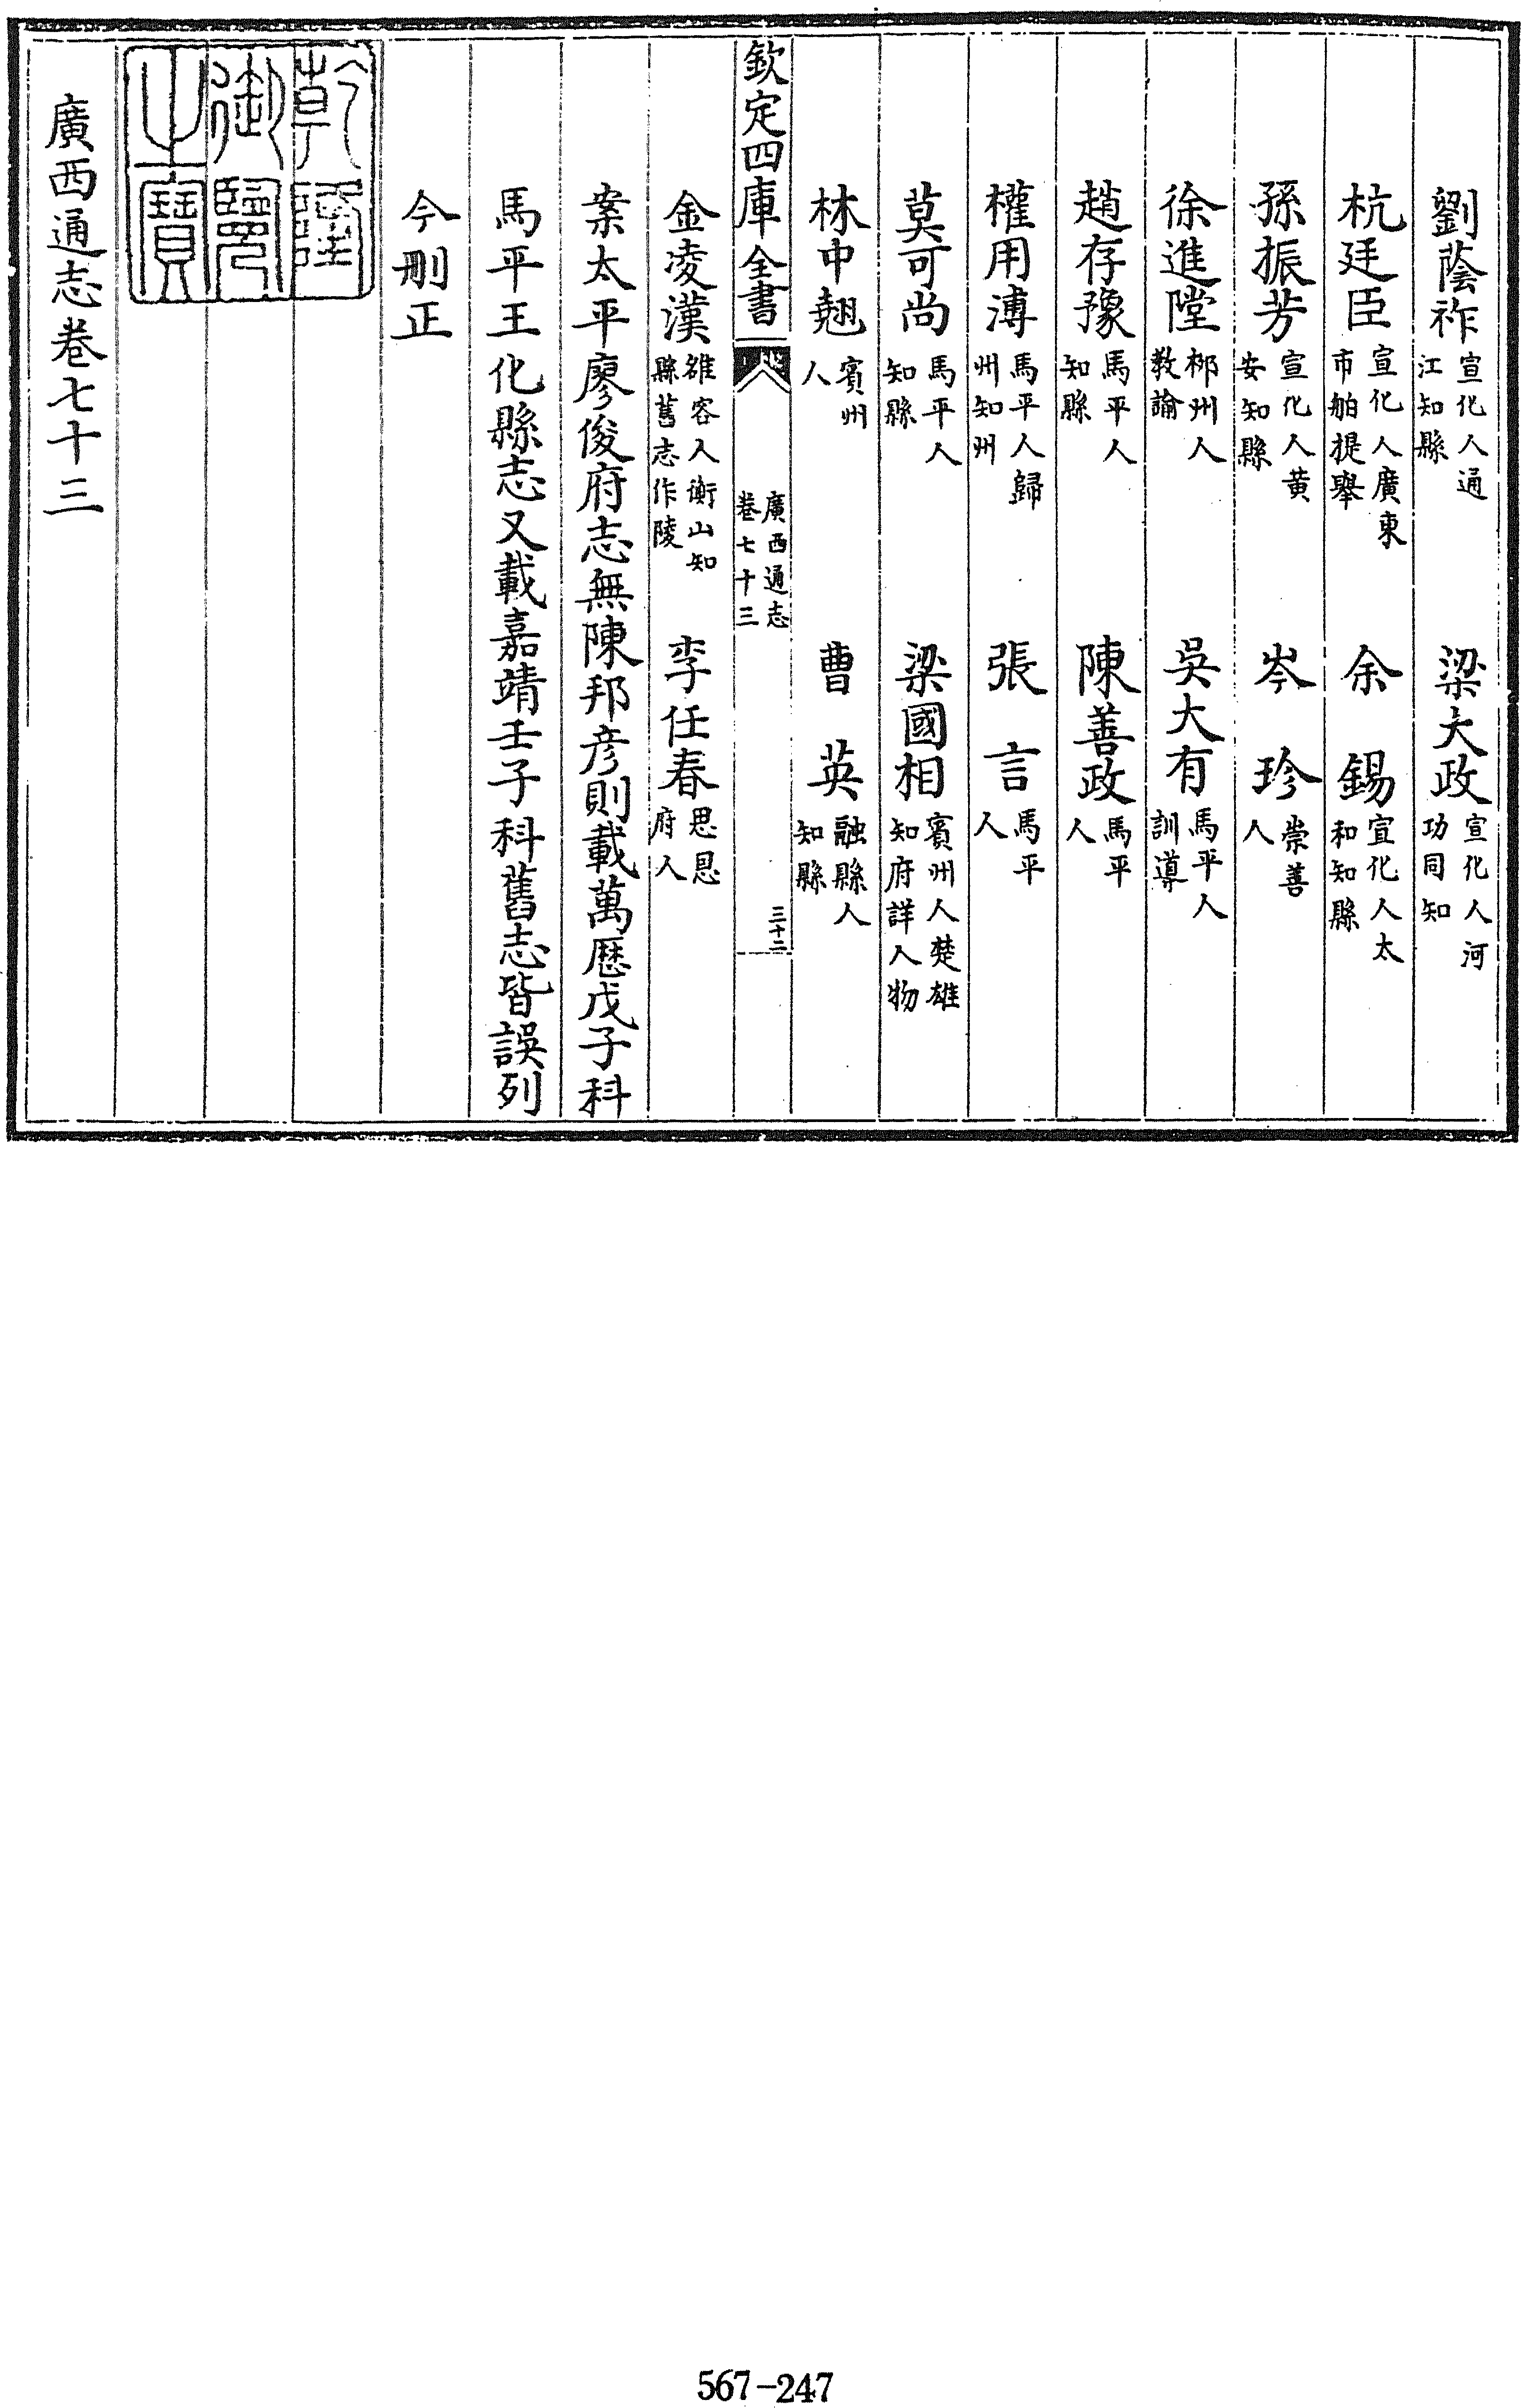 劉蔭祚宣化人通江知縣　梁大政宣化人河功同知
杭廷臣宣化人廣東市舶提舉　余錫宣化人太和知縣
孫振芳宣化人黄安知縣　岑珍崇善人
徐進隆郴州人教諭　吳大有馬平人訓導
趙存豫馬平人知縣　陳善政馬平人
權用溥馬平人歸州知州　張言馬平人
莫可尚馬平人知縣　梁國相賓州人楚雄知府詳人物
林中翹賓州人　曹英融縣人知縣
欽定四庫全書　廣西通志卷七十三　三十二
金凌漢雒容人衡山知縣舊志作陵　李任春思恩府人
案太平廖俊府志無陳邦彦則載萬厯戊子科
馬平王化縣志又載嘉靖壬子科舊志皆誤列
今刪正
乾隆御覽之寶
廣西通志卷七十三
567-247